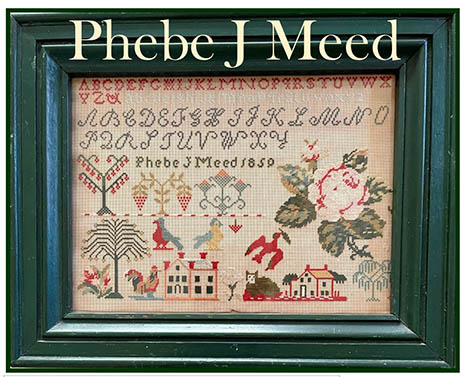 Phebe J Meed
ABCDEFGHIJKLMNOPQRSTUVWX
YZ
ABCDEFGHIJKLMNO
PQRSTUVWXY
Phebe J Meed 1859